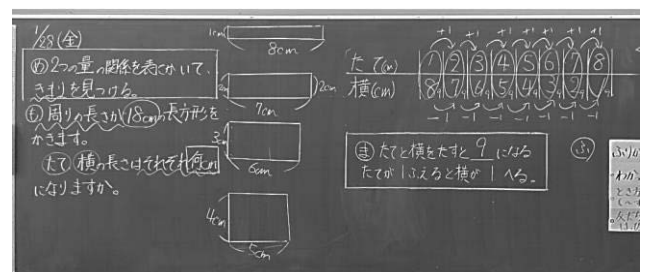 1/28(金)
め 2つの量の関係を表にかいて、
きまりを見つける。
も 周りの長さが18cmの長方形を
かきます。
たて 横の長さはそれぞれ何cm
になりますか。
1cm
8cm
2cm
2cm
7cm
3cm
6cm
4cm
5cm
+1 +1 +1 +1 +1 +1 +1
たて(cm) 1 2 3 4 5 6 7 8
横(cm) 8 7 6 5 4 3 2 1
-1 -1 -1 -1 -1 -1 -1
ま たてと横をたすと 9 になる
たてが1ふえると横が 1 へる。
ふ
ふりか